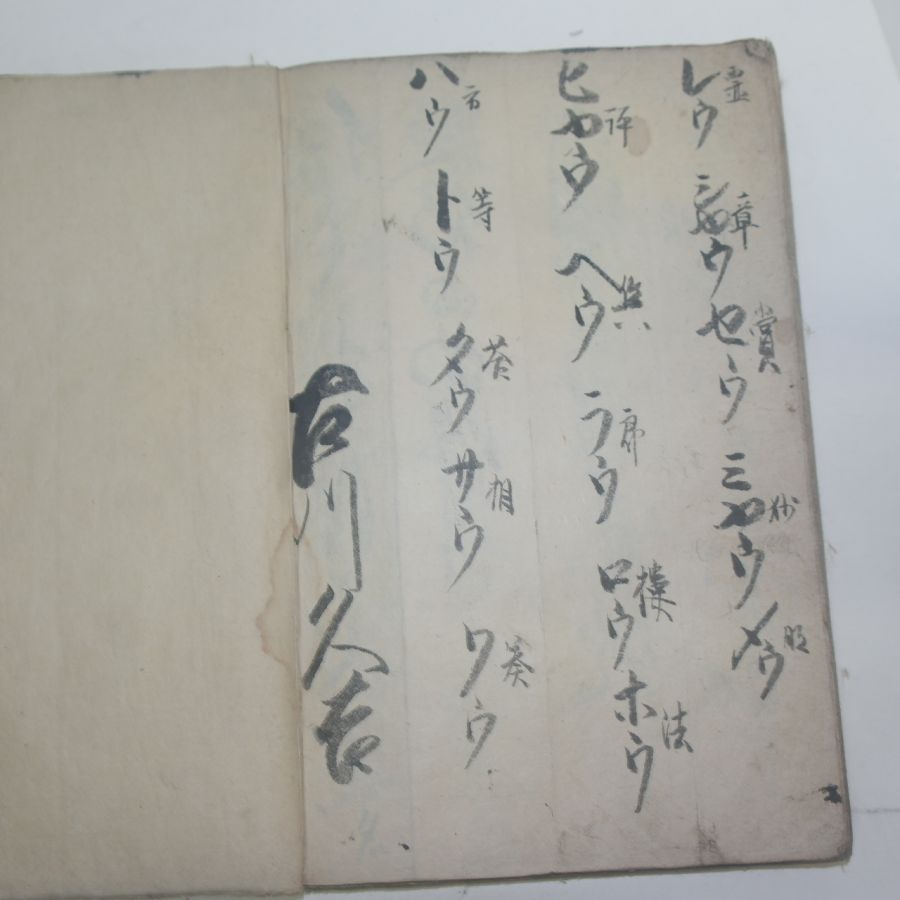 レウ 霊 シヤウ 章 セウ 賞 ミヤウ 妙 メウ 明
ヒヤウ 評 ヘウ ラウ 郎 ロウ 楼 ホウ 法
ハウ 方 トウ 等 タウ 答 サウ 相 ワウ
古川久吉